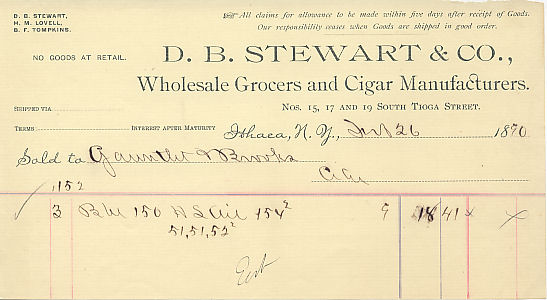 D. B. STEWART,
H. M. LOVELL,
B. F. TOMPKINS.
All claims for allowance to be made within five days after receipt of Goods.
Our responsibility ceases when Goods are shipped in good order.
NO GOODS AT RETAIL.
D. B. STEWART & CO.,
Wholesale Grocers and Cigar Manufacturers.
NOS. 15, 17 AND 19 SOUTH TIOGA STREET.
SHIPPED VIA
TERMS INTEREST AFTER MATURITY
Ithaca, N. Y., 26 1890
Sold to Gauntlet & Brooks
City
1152
3 150 154² 9 18 41 x x
51, 51, 52²